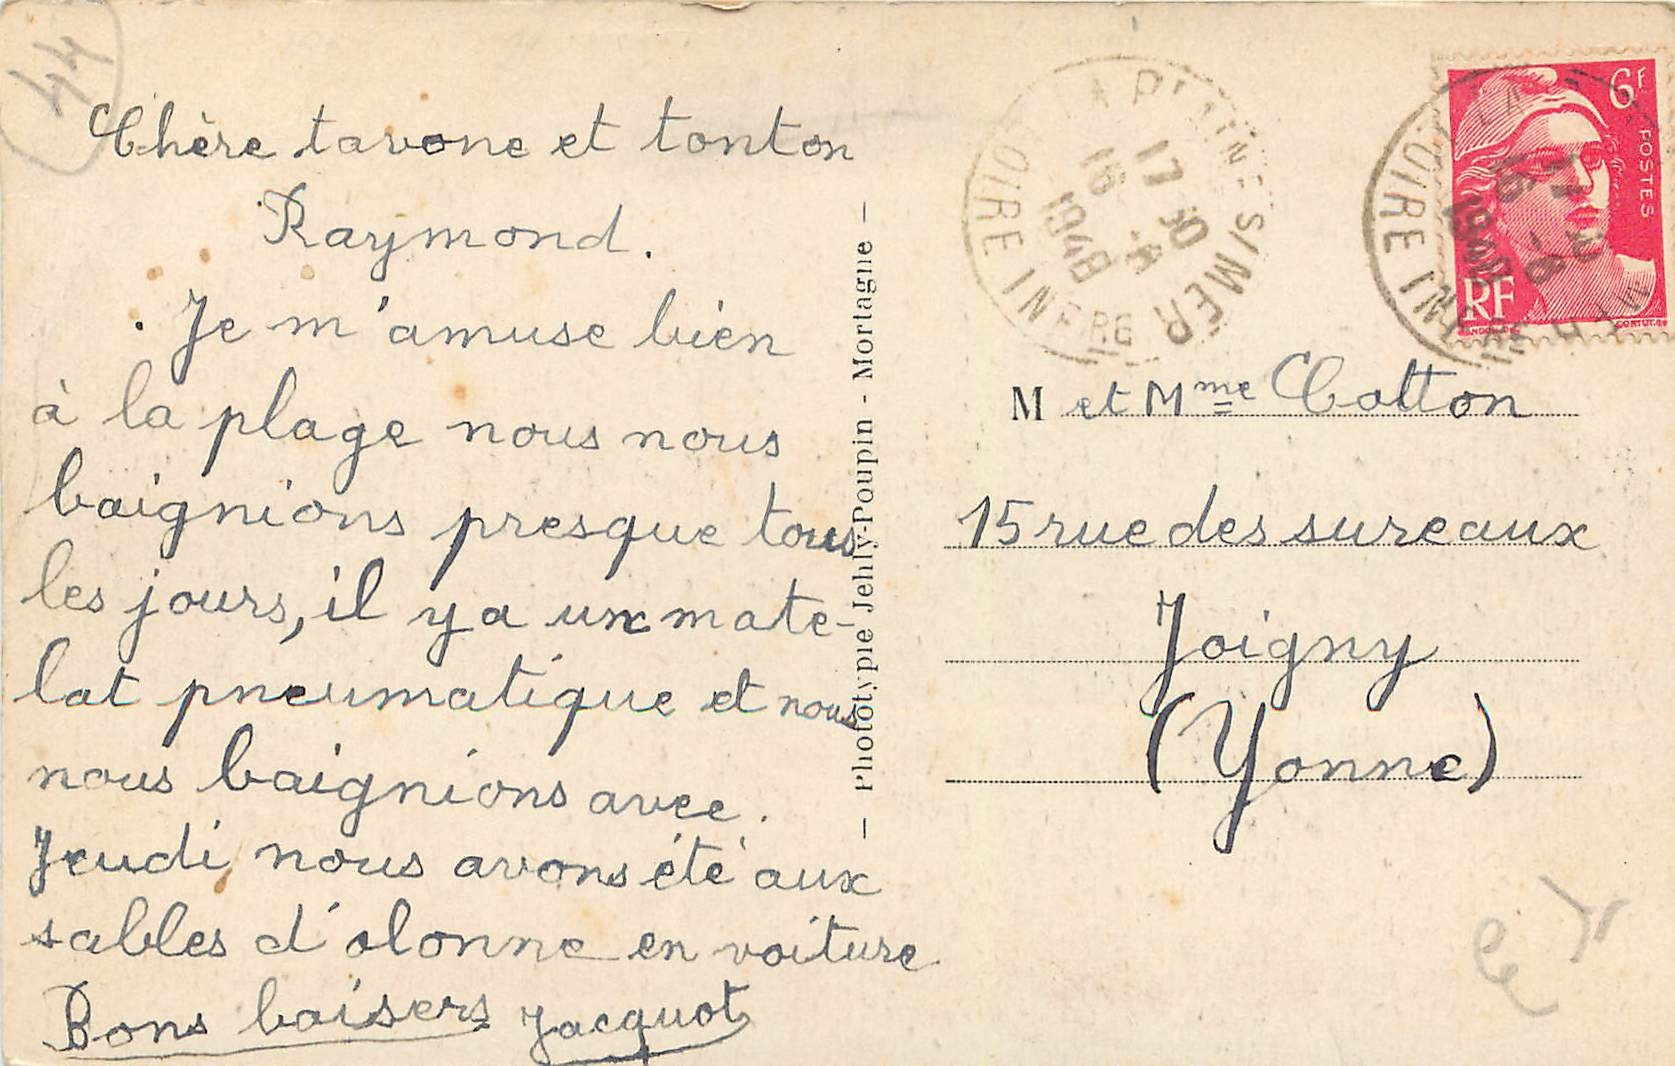 44
Chère tavone et tonton
Raymond.
Je m'amuse bien
à la plage nous nous
baignions presque tous
les jours, il y a un mate-
lat pneumatique et nous
nous baignions avec.
Jeudi nous avons été aux
sables d'olonne en voiture
Bons baisers Jacquot
— Phototypie Jehly-Poupin - Mortagne —
LA PLAINE S/MER
17 30
16 -8
1948
LOIRE INFRE
6F
POSTES
RF
M et Mme Cotton
15 rue des sureaux
Joigny
(Yonne)